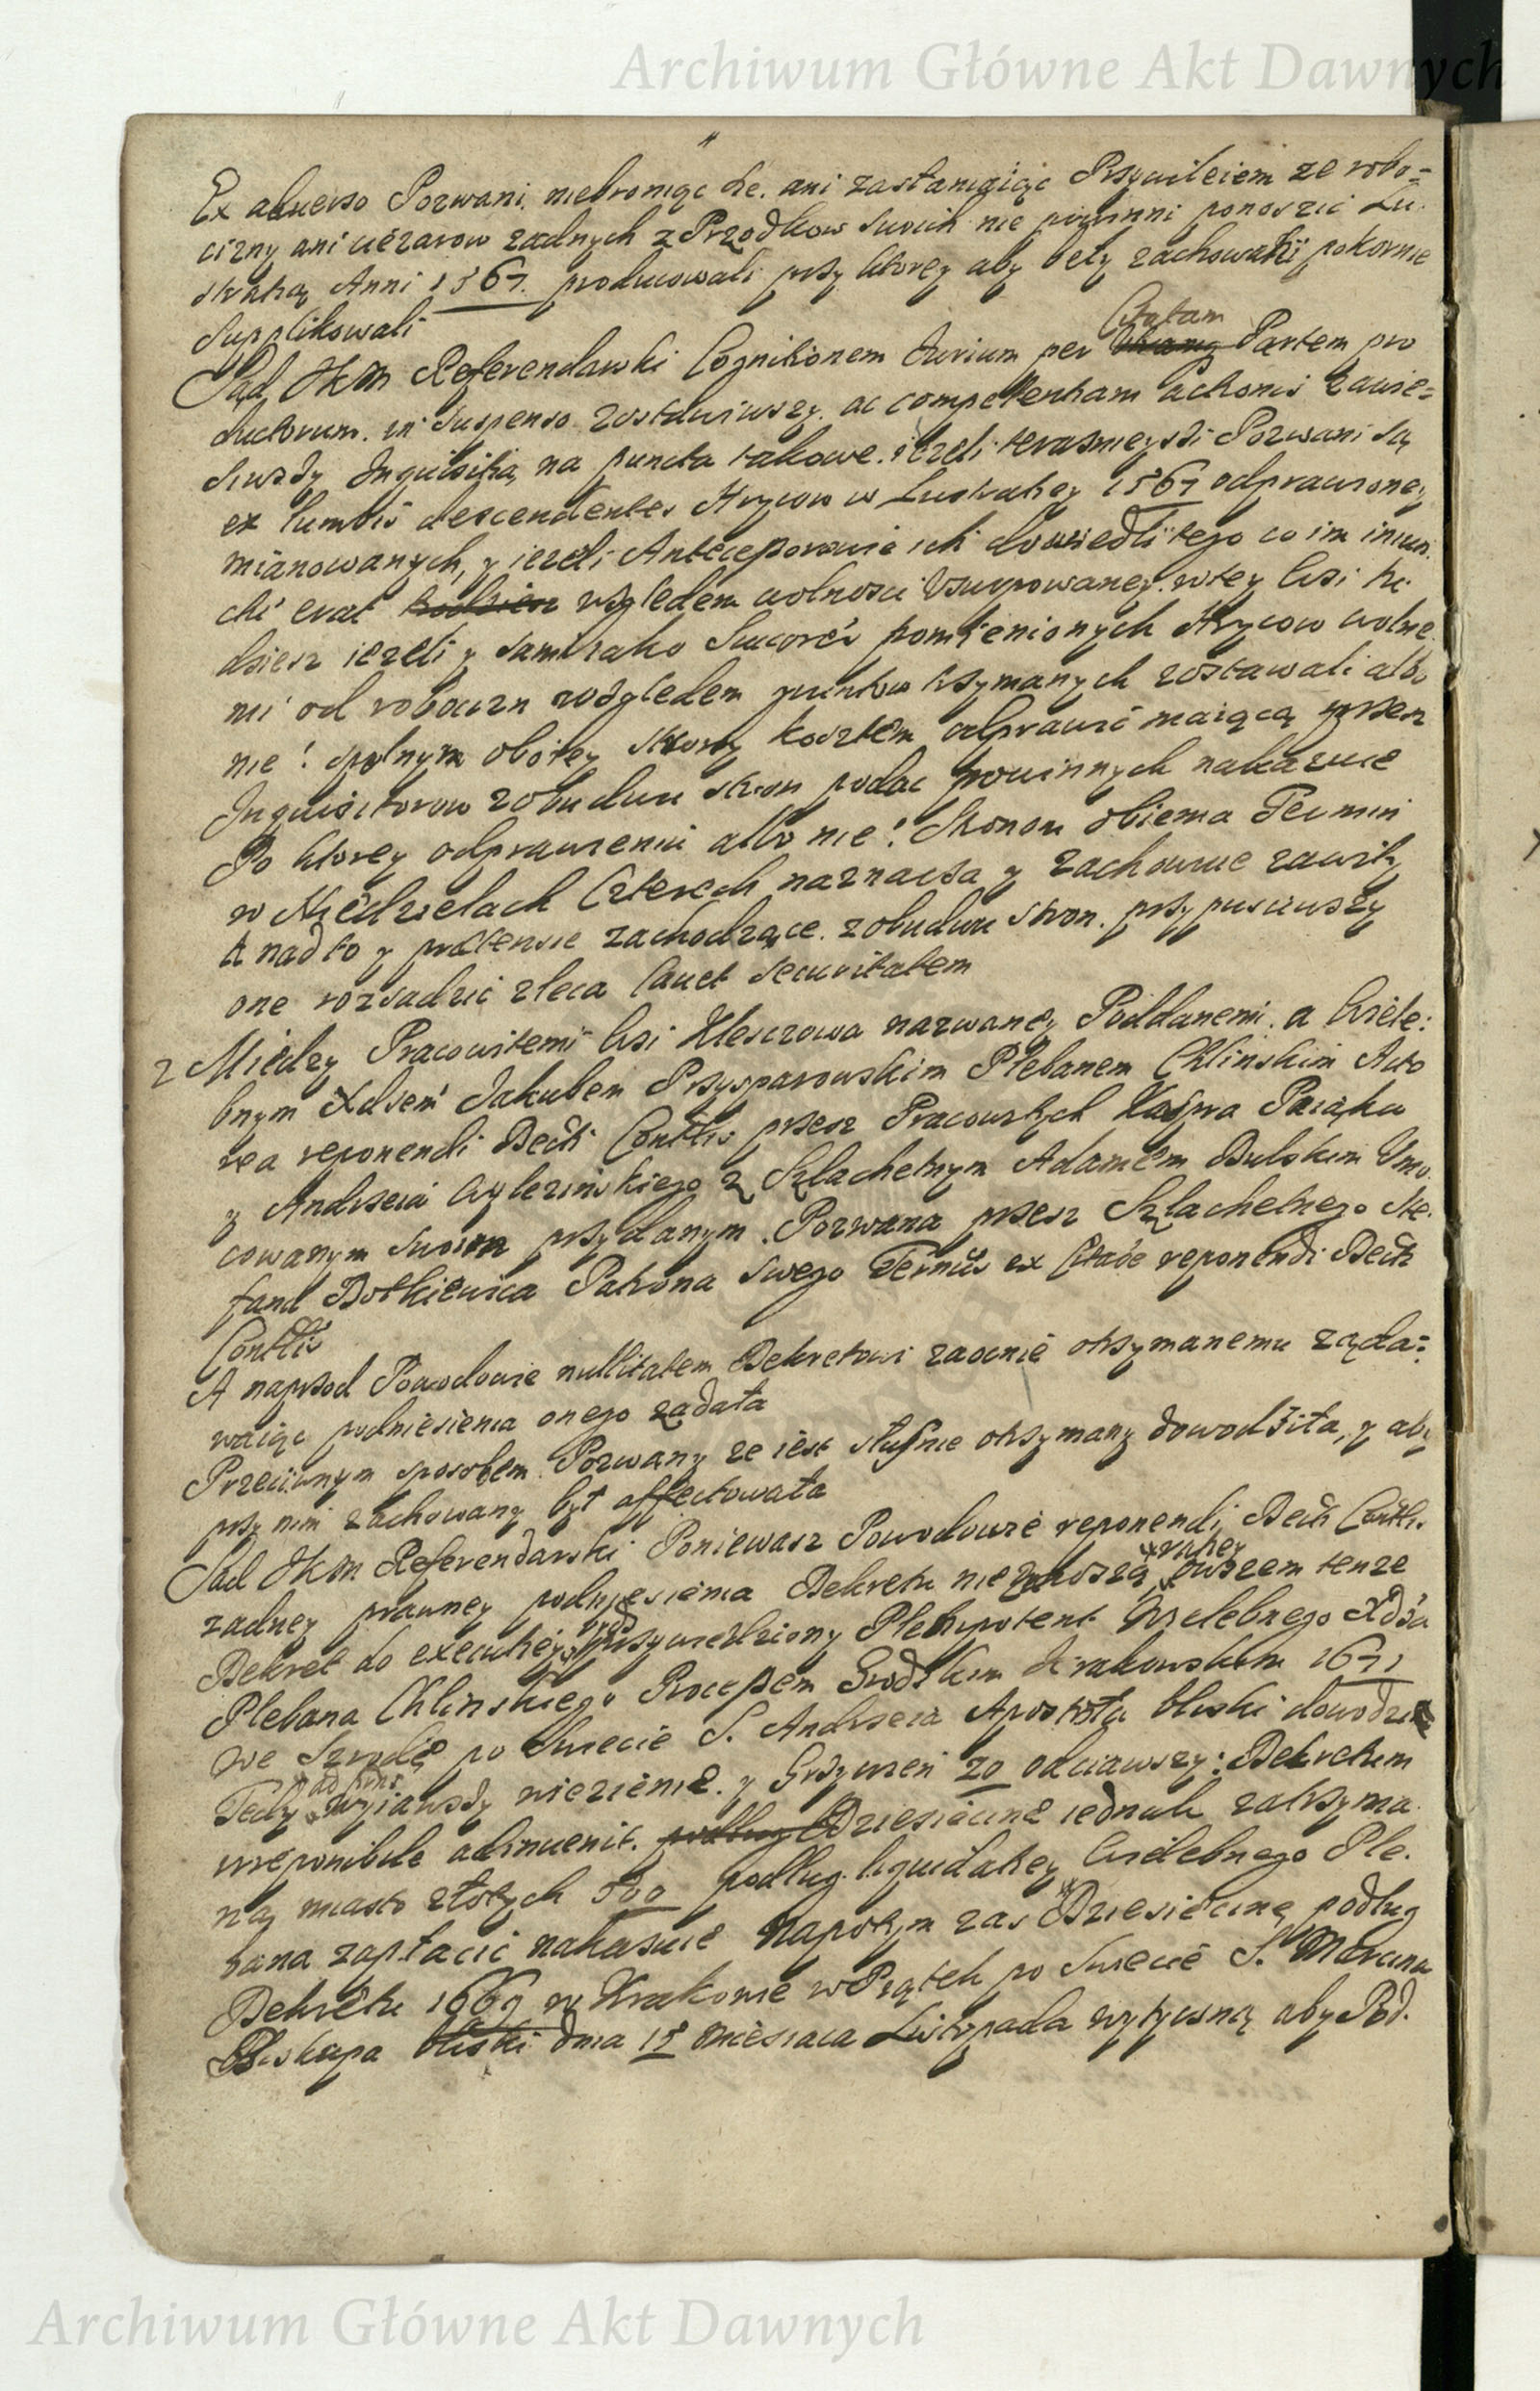 Archiwum Główne Akt Dawnych
Ex aduerso Pozwani, niebroniąc sie, ani zastaniaiąc Przywileiem ze robo=
cizny ani ciężarow zadnych z Przodkow swoich nie powinni ponosic Lu-
stratią Anni 1567. producowali przy ktorey aby bely zachowani pokornie
Supplikowali
Sąd JKM Referendarski Cognitionem Iurium per Citatam Partem pro
ductorum in suspenso zostawiwszy, ac competentiam actionis zawie=
siwszy Inquisitią na puncta takowe, iezeli terasnieyszi Pozwani są
ex lumbis descendentes Hrycow w Lustratiey 1567 odprawioney
mianowanych, y iezeli Antecessorowie ich dowiedli tego co im iniun
cti erat względem wolnosci Vzurpowaney w tey wsi
dziesz iezeli y sami iako Succores pomienionych Hrycow wolne
mi od robocizn względem gruntow trzymanych zostawali albo
nie! spolnym oboiey strony kosztem odprawic maiącą przez
Inquisitorow zobudwu stron podac powinnych nakazuie
Po ktorey odprawieniu albo nie! Stronom obiema Termin
w Niedzielach Czterech naznacza y zachowuie zawity
A nadto y praetensie zachodzące zobudwu stron, przypusciwszy
one rozsadzic zleca Cauet securitatem
2 Między Pracowitemi wsi Kleszczowa nazwaney Poddanemi, a Wiele:
bnym Xdzem Jakubem Przypparowskim Plebanem Chlinskim Acto
rea reponendi Decti Conttis przez Pracowitych Kaspra Paiąka
y Andrzeia z Szlachetnym Adamem Bulskim Umo
cowanym swoim przydanym. Pozwana przez Szlachetnego Ste
fana Botkiewica Patrona swego Terminus ex Citaoe reponendi Decti
Conttis
A naprzod Powodowie nullitatem Dekretowi zaocnie otrzymanemu zada=
waiąc podniesienia onego żądała
Przeciwnym sposobem Pozwany ze iest słusznie otrzymany dowodziła, y aby
przy nim zachowany był affectowała
Sąd JKM Referendarski Poniewasz Powodowie reponendi Decti Conttis
zadney prawney podniesienia Dekretu nie wnoszą ratiey, owszem tenze
Dekret do executiey przywiedziony Plenipotent Wielebnego Xdza
Plebana Chlinskiego Processem Grodzkim Krakowskim 1671
we Szrodę po Swiecie S. Andrzeia Apostoła bliski dowodzi
Tedy wyiawszy wiezienie, y Grzywien 20 odciawszy: Dekretum
irreponibile adinuenit. Dziesiecinę iednak zatrzyma
ną miasto złotych 500 podług liquidatiey Wielebnego Ple-
bana zapłacic nakazuie Napotym zas Dziesiecinę podług
Dekretu 1669 w Krakowie w Piątek po Swiecie S. Marcina
Biskupa bliski dnia 15 Miesiaca Listopada wytyczną aby Pod.
Archiwum Główne Akt Dawnych